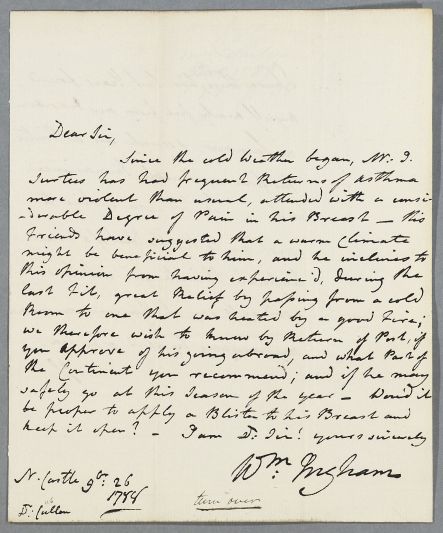 Dear Sir,
Since the cold Weather began, Mr. J.
Surtees has had frequent Returns of Asthma
more violent than usual, attended with a consi-
-derable Degree of Pain in his Breast — His
Friends have suggested that a warm Climate
might be beneficial to him, and he inclines to
this opinion from having experienc'd, during the
last Fit, great Relief by passing from a cold
Room to one that was heated by a good Fire;
we therefore wish to know by Return of Post, if
you approve of his going abroad, and what Part of
the Continent you recommend; and if he may
safely go at this Season of the year — Would it
be proper to apply a Blister to his Breast and
keep it open? — I am Dr. Sir! yours sincerely
Wm. Ingham
N. Castle 9br. 26
1788
Dr. Cullen
turn over